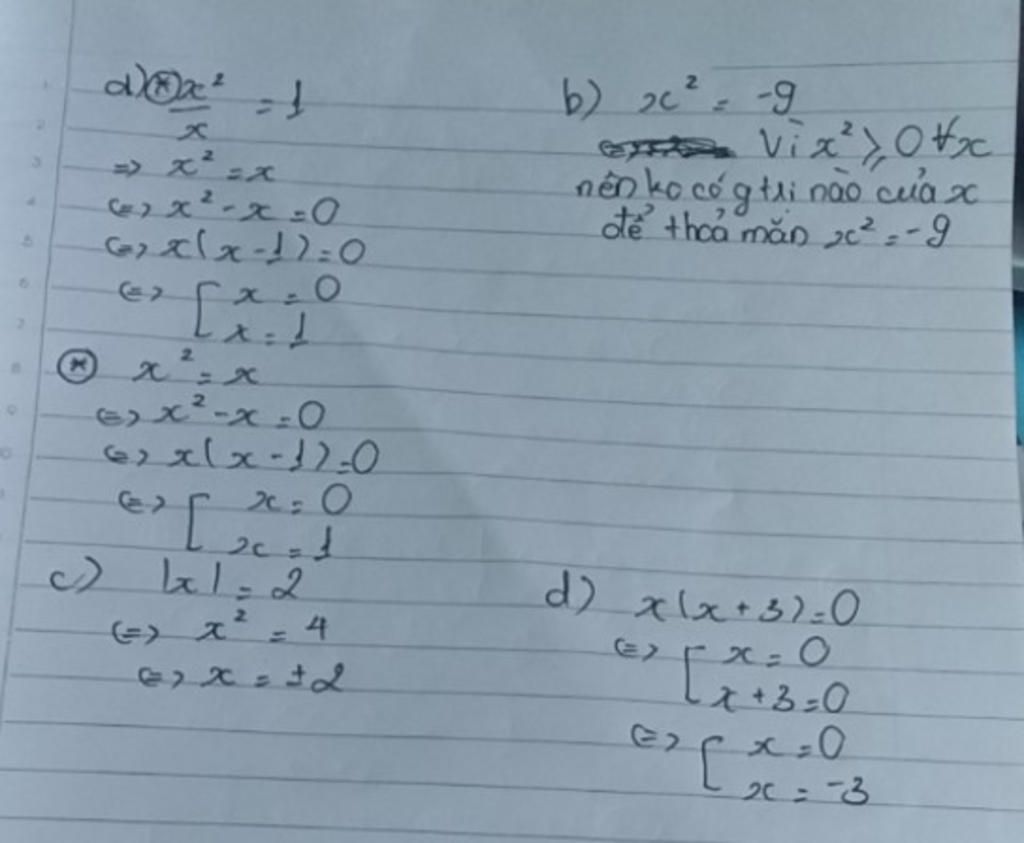 a) ⊛ x²/x = 1
=> x² = x
<=> x² - x = 0
<=> x(x - 1) = 0
<=> [ x = 0
x = 1
⊛ x² = x
<=> x² - x = 0
<=> x(x - 1) = 0
<=> [ x = 0
x = 1
b) x² = -9
Vì x² ⩾ 0 ∀x
nên ko có gtri nào của x
để thoả mãn x² = -9
c) |x| = 2
<=> x² = 4
<=> x = ±2
d) x(x + 3) = 0
<=> [ x = 0
x + 3 = 0
<=> [ x = 0
x = -3